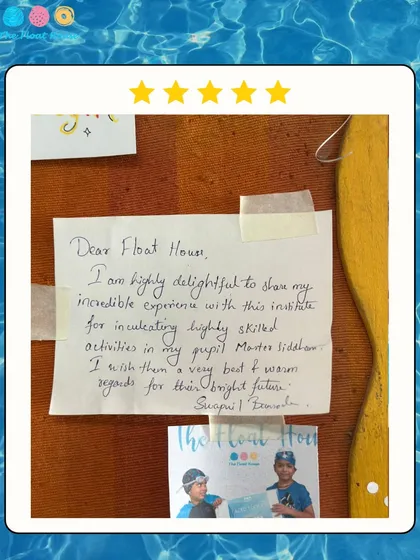 The Float House
Dear Float House,
I am highly delightful to share my
incredible experience with this institute
for inculcating highly skilled
activities in my pupil Master Siddham.
I wish them a very best & warm
regards for their bright future.
Swapnil
The Float Hou
The Float House